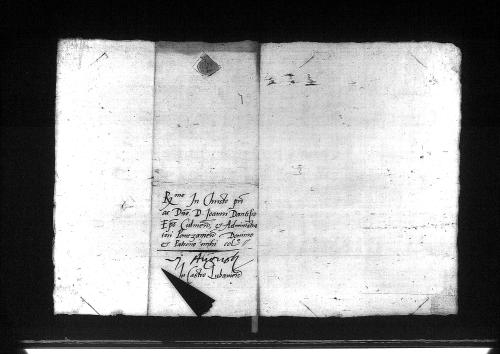 R.me In Christo pri
ac Dno D. Joanni Dantisco
Epo Culmen. et Administra
tori Pomezanien Domino
et Patrono mihi col.
In castro Lubaviens